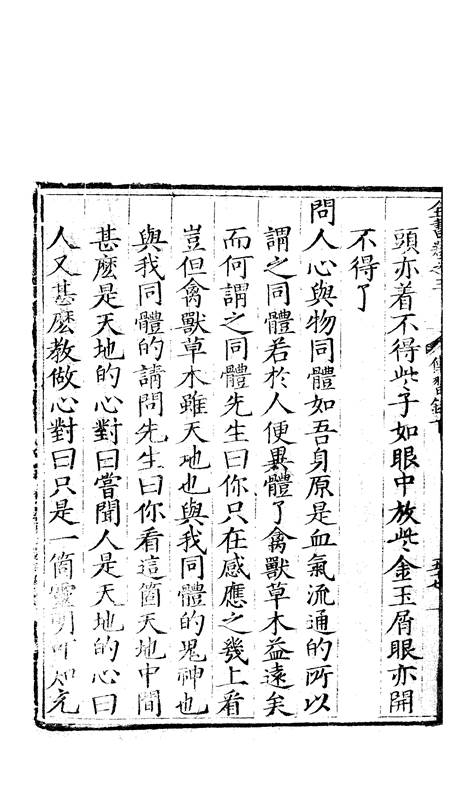 全書卷之三 傳習錄下 五七
頭亦着不得些子如眼中放些金玉屑眼亦開
不得了
問人心與物同體如吾身原是血氣流通的所以
謂之同體若於人便異體了禽獸草木益遠矣
而何謂之同體先生曰你只在感應之幾上看
豈但禽獸草木雖天地也與我同體的鬼神也
與我同體的請問先生曰你看這箇天地中間
甚麽是天地的心對曰嘗聞人是天地的心曰
人又甚麽教做心對曰只是一箇靈明可知充